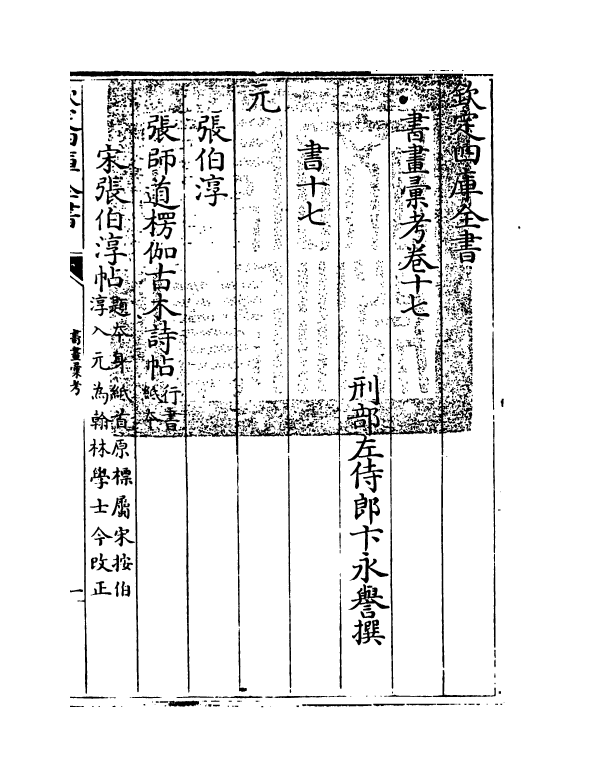 欽定四庫全書
書畫彙考卷十七
刑部左侍郎卞永譽撰
書十七
元
張伯淳
張師道楞伽古木詩帖行書紙本
宋張伯淳帖題本身紙首原標屬宋按伯淳入元為翰林學士今改正
欽定四庫全書
書畫彙考
一